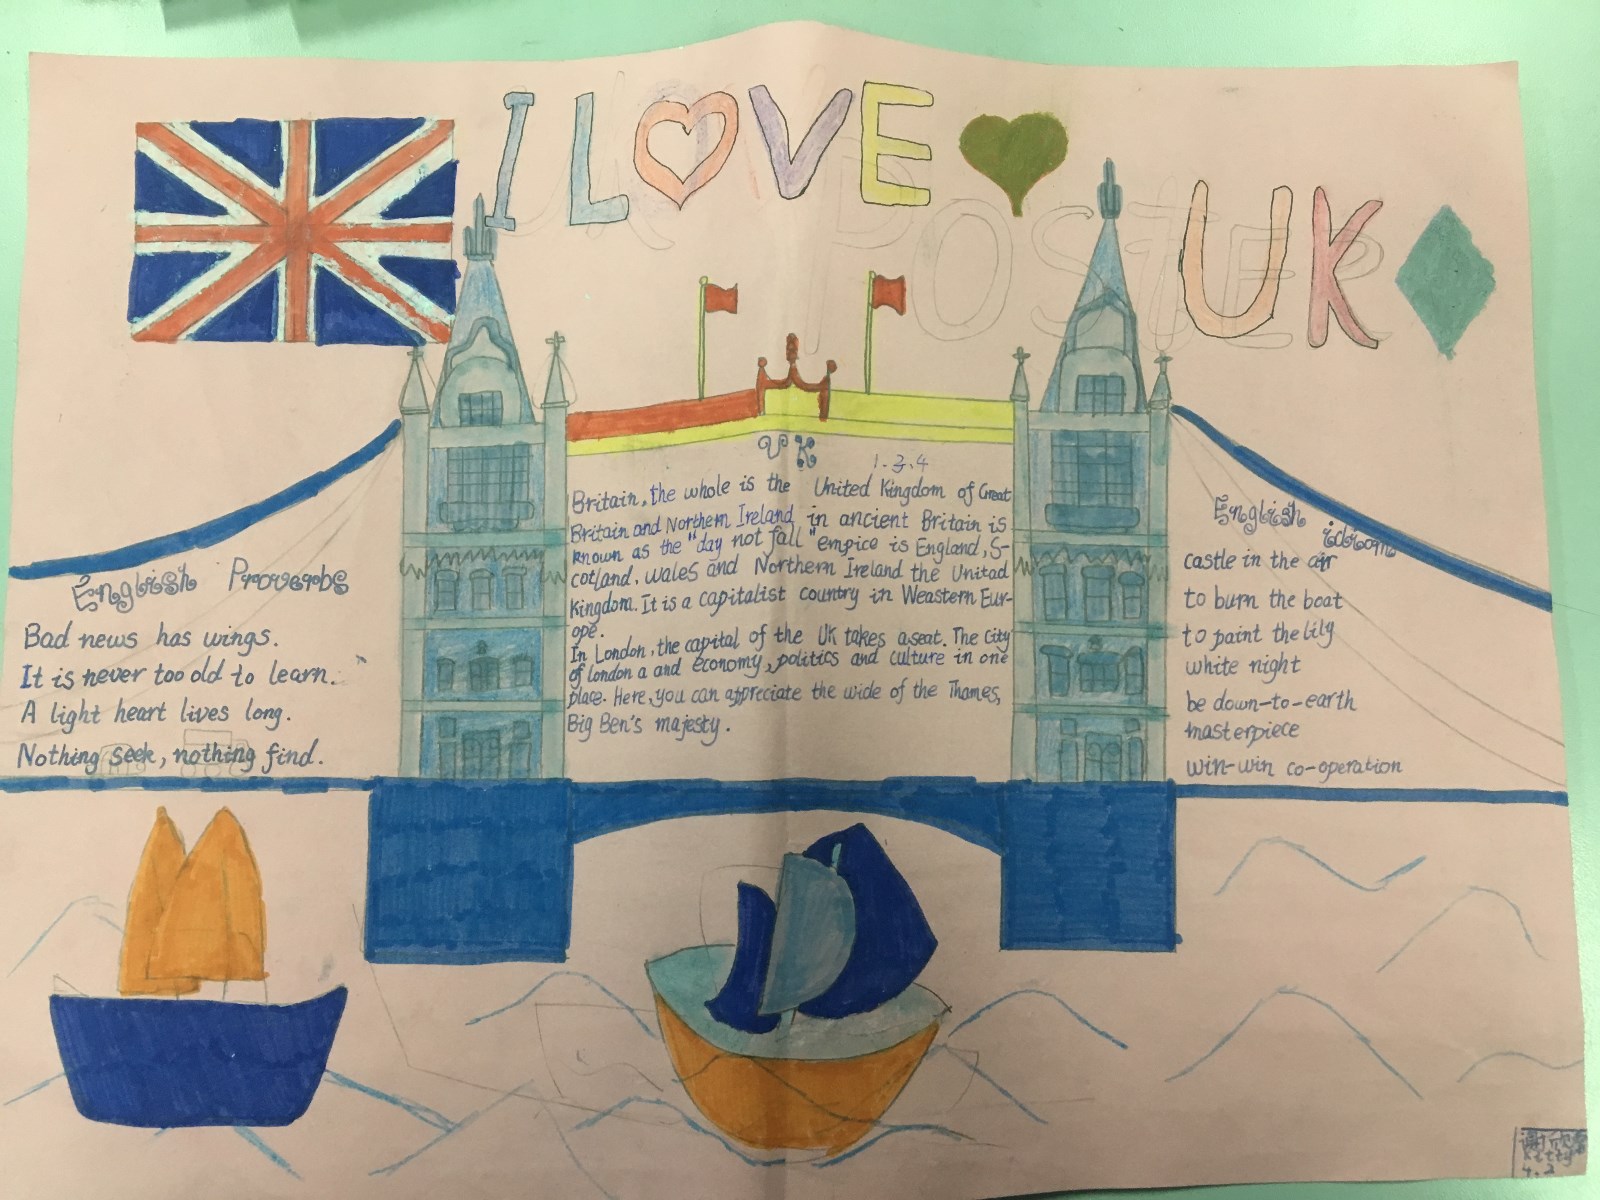 I LOVE
UK
UK POSTER
UK
1.3.4
Britain, the whole is the United Kingdom of Great
Britain and Northern Ireland in ancient Britain is
known as the "day not fall" empice is England, S-
cotland, wales and Northern Ireland the Unitad
Kingdom. It is a capitalist country in Weastern Eur-
ope.
In London, the capital of the UK takes a seat. The City
of london a and economy, politics and culture in one
place. Here, you can appreciate the wide of the Thames,
Big Ben's majesty.
English Proverbs
Bad news has wings.
It is never too old to learn.
A light heart lives long.
Nothing seek, nothing find.
English
idiom
castle in the air
to burn the boat
to paint the lily
white night
be down-to-earth
masterpiece
win-win co-operation
谢欣
Kitty
4.2